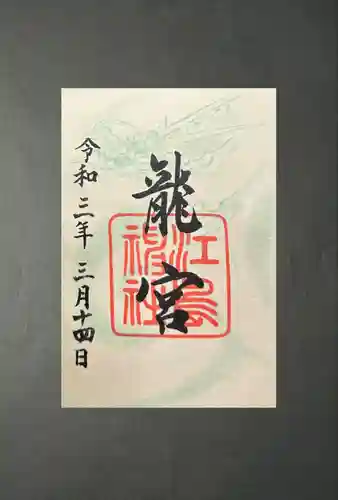 龍宮
江島神社
令和三年三月十四日